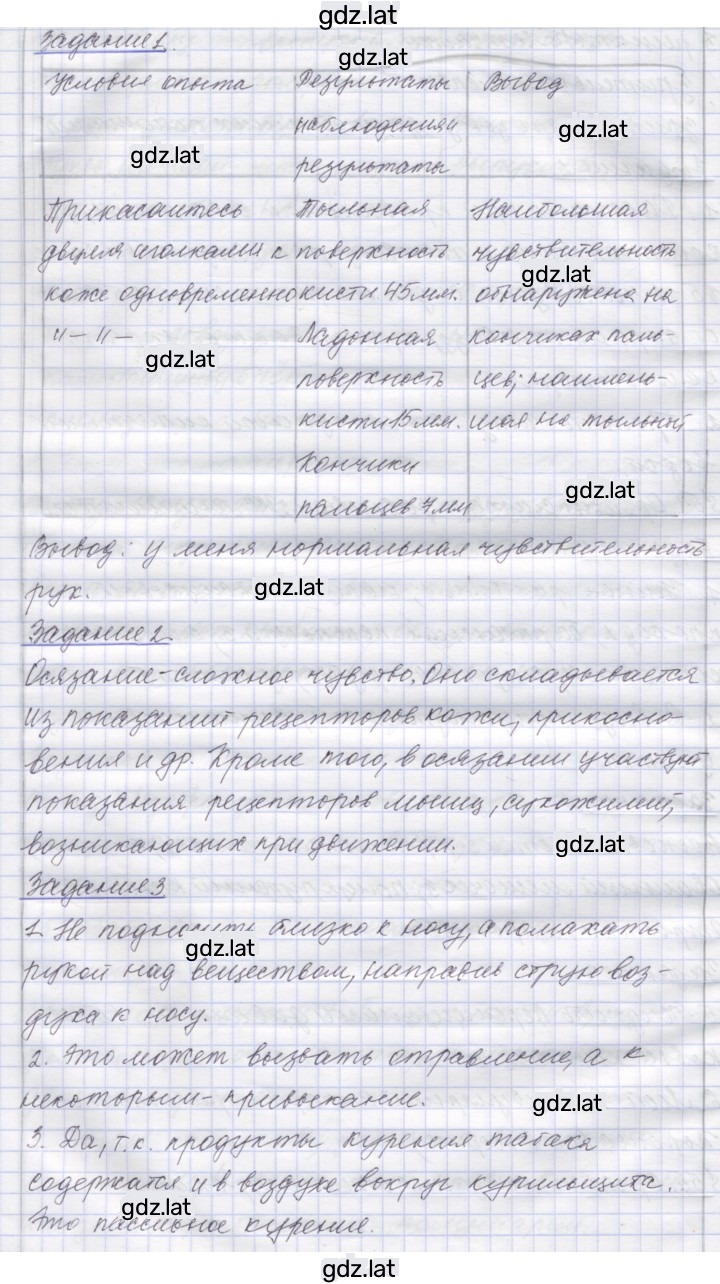 gdz.lat
Задание 1.
gdz.lat
Условие опыта Результаты Вывод
наблюдения и
gdz.lat
gdz.lat
результаты
Прикасаитесь тыльная Наибольшая
двумя иголками к поверхность чувствительность
gdz.lat
коже одновременно кисти 45мм. обнаружена на
"—"— Ладонная кончиках паль-
gdz.lat
поверхность цев; наимень-
кисти 15мм. шая на тыльной
Кончики
gdz.lat
пальцев 7мм
Вывод: у меня нормальная чувствительность
рук.
gdz.lat
Задание 2.
Осязание-сложное чувство. Оно складывается
из показаний рецепторов кожи, прикосно-
вения и др. Кроме того, в осязании участвуют
показания рецепторов мышц, сухожилий,
возникающих при движении.
gdz.lat
Задание 3
1. Не подносить близко к носу, а помахать
gdz.lat
рукой над веществом, направив струю воз-
духа к носу.
2. Это может вызвать отравление, а к
некоторым- привыкание.
gdz.lat
3. Да, т.к. продукты курения табака
содержатся и в воздухе вокруг курильщика.
gdz.lat
Это пассивное курение.
gdz.lat